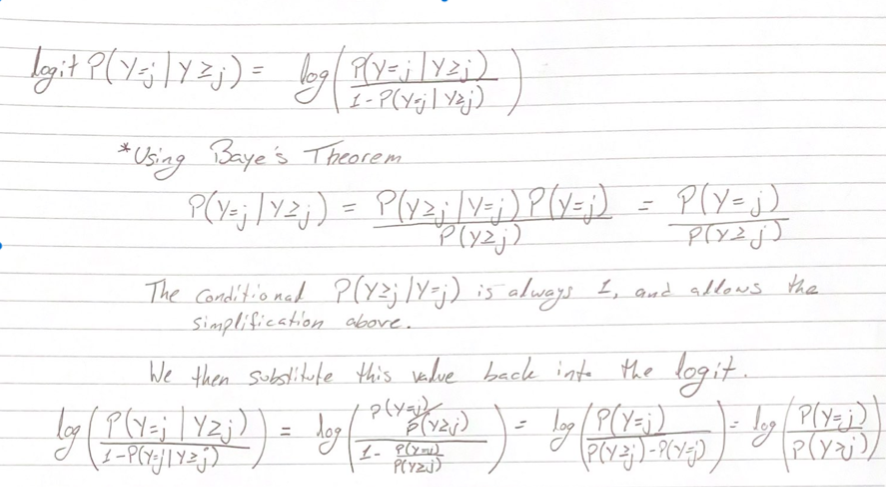 logit P(Y=j | Y≥j) = log( P(Y=j | Y≥j) / 1-P(Y=j | Y≥j) )
*Using Baye's Theorem
P(Y=j | Y≥j) = P(Y≥j | Y=j) P(Y=j) / P(Y≥j) = P(Y=j) / P(Y≥j)
The conditional P(Y≥j | Y=j) is always 1, and allows the
simplification above.
We then substitute this value back into the logit.
log( P(Y=j | Y≥j) / 1-P(Y=j | Y≥j) ) = log( P(Y=j)/P(Y≥j) / 1- P(Y=j)/P(Y≥j) ) = log( P(Y=j) / P(Y≥j)-P(Y=j) ) = log( P(Y=j) / P(Y>j) )